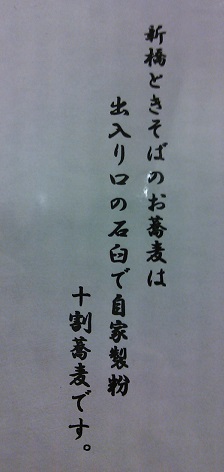 新橋ときそばのお蕎麦は
出入り口の石臼で自家製粉
十割蕎麦です。